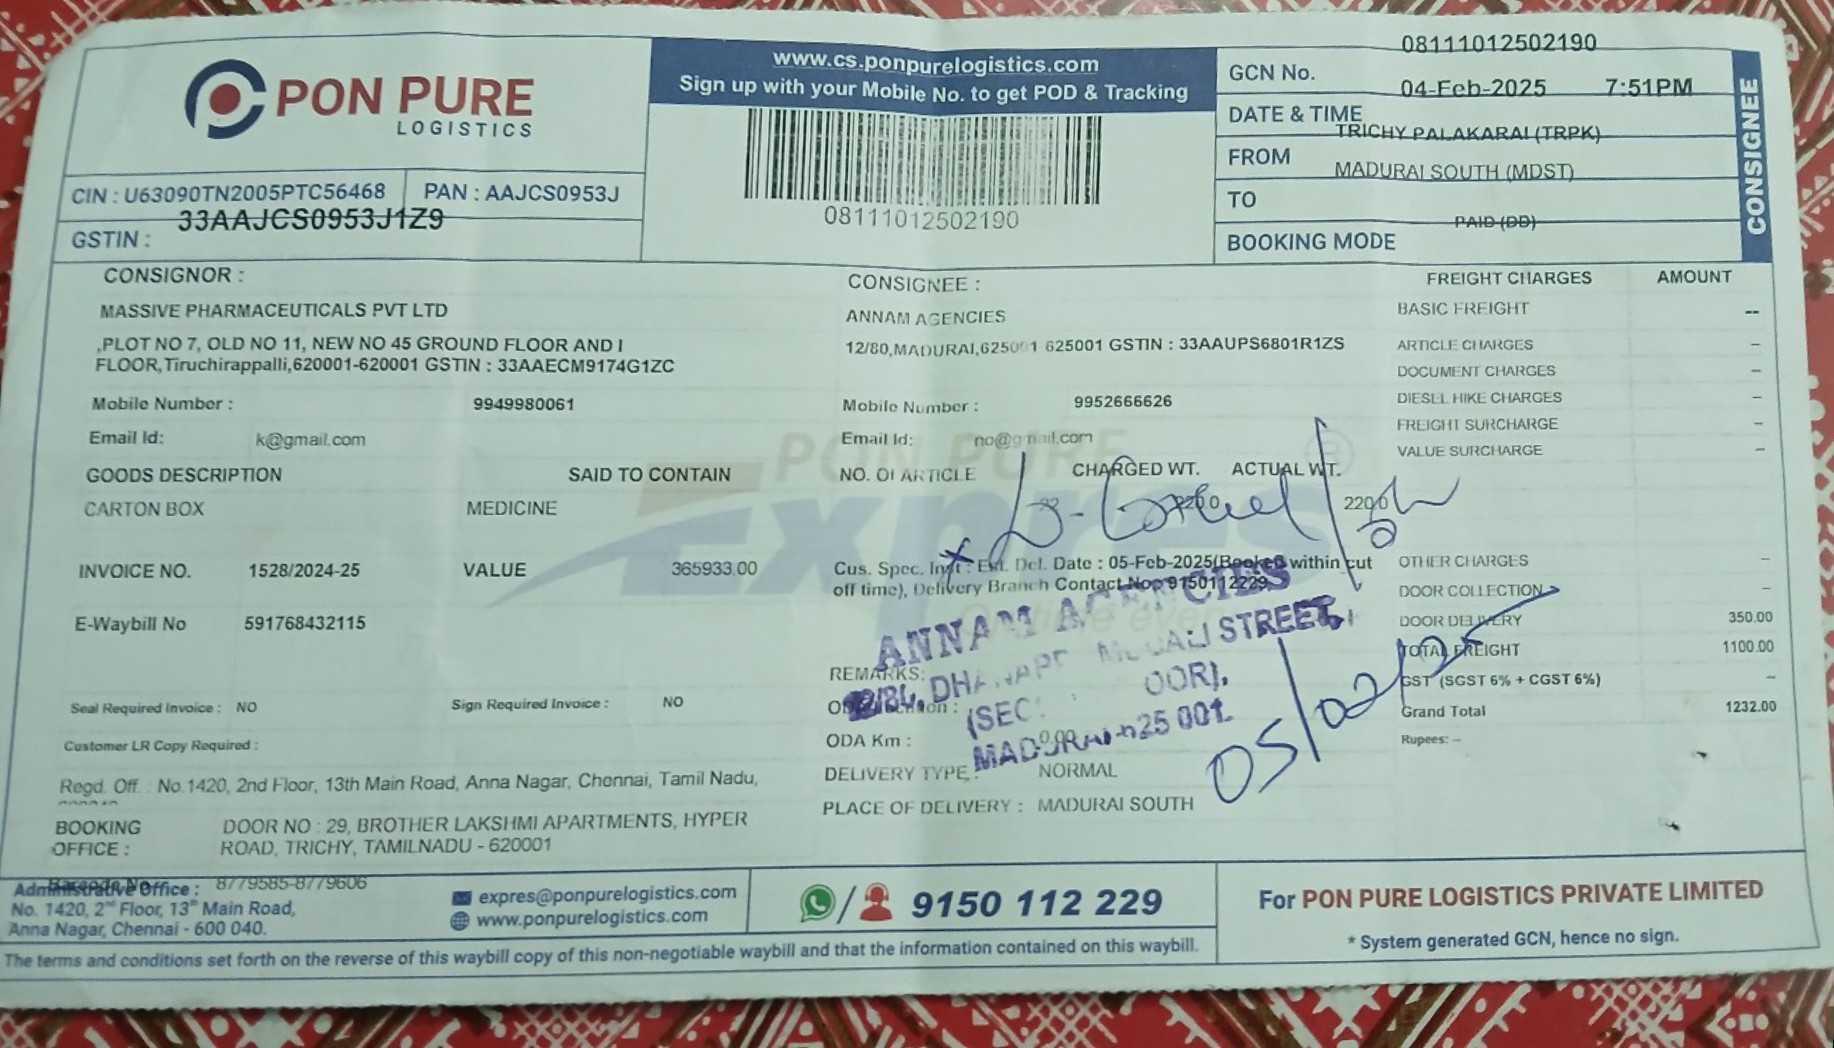 PON PURE
LOGISTICS
CIN : U63090TN2005PTC56468 PAN : AAJCS0953J
GSTIN : 33AAJCS0953J1Z9
www.cs.ponpurelogistics.com
Sign up with your Mobile No. to get POD & Tracking
08111012502190
GCN No. 08111012502190
DATE & TIME 04-Feb-2025 7:51PM
FROM TRICHY PALAKARAI (TRPK)
TO MADURAI SOUTH (MDST)
BOOKING MODE PAID (DD)
CONSIGNEE
CONSIGNOR :
MASSIVE PHARMACEUTICALS PVT LTD
,PLOT NO 7, OLD NO 11, NEW NO 45 GROUND FLOOR AND I
FLOOR,Tiruchirappalli,620001-620001 GSTIN : 33AAECM9174G1ZC
Mobile Number : 9949980061
Email Id: k@gmail.com
GOODS DESCRIPTION SAID TO CONTAIN
CARTON BOX MEDICINE
INVOICE NO. 1528/2024-25 VALUE 365933.00
E-Waybill No 591768432115
Seal Required Invoice : NO Sign Required Invoice : NO
Customer LR Copy Required :
Regd. Off. : No.1420, 2nd Floor, 13th Main Road, Anna Nagar, Chennai, Tamil Nadu,
BOOKING OFFICE : DOOR NO : 29, BROTHER LAKSHMI APARTMENTS, HYPER
ROAD, TRICHY, TAMILNADU - 620001
CONSIGNEE :
ANNAM AGENCIES
12/80,MADURAI,625001 625001 GSTIN : 33AAUPS6801R1ZS
Mobile Number : 9952666626
Email Id: no@gmail.com
PON PURE
Expres
NO. OF ARTICLE CHARGED WT. ACTUAL WT.
220.0 220.0
Cus. Spec. Inst : Est. Del. Date : 05-Feb-2025(Booked within cut
off time), Delivery Branch Contact No. 9150112229
ANNAM AGENCIES
STREET,
MADURAI 625 001.
05/02/25
REMARKS:
ODA Km : 0.00
DELIVERY TYPE : NORMAL
PLACE OF DELIVERY : MADURAI SOUTH
FREIGHT CHARGES AMOUNT
BASIC FREIGHT --
ARTICLE CHARGES –
DOCUMENT CHARGES –
DIESEL HIKE CHARGES –
FREIGHT SURCHARGE –
VALUE SURCHARGE –
OTHER CHARGES –
DOOR COLLECTION –
DOOR DELIVERY 350.00
TOTAL FREIGHT 1100.00
GST (SGST 6% + CGST 6%) –
Grand Total 1232.00
Rupees: –
Barcode No 8779585-8779606
Administrative Office :
No. 1420, 2nd Floor, 13th Main Road,
Anna Nagar, Chennai - 600 040.
expres@ponpurelogistics.com
www.ponpurelogistics.com
/ 9150 112 229
For PON PURE LOGISTICS PRIVATE LIMITED
* System generated GCN, hence no sign.
The terms and conditions set forth on the reverse of this waybill copy of this non-negotiable waybill and that the information contained on this waybill.